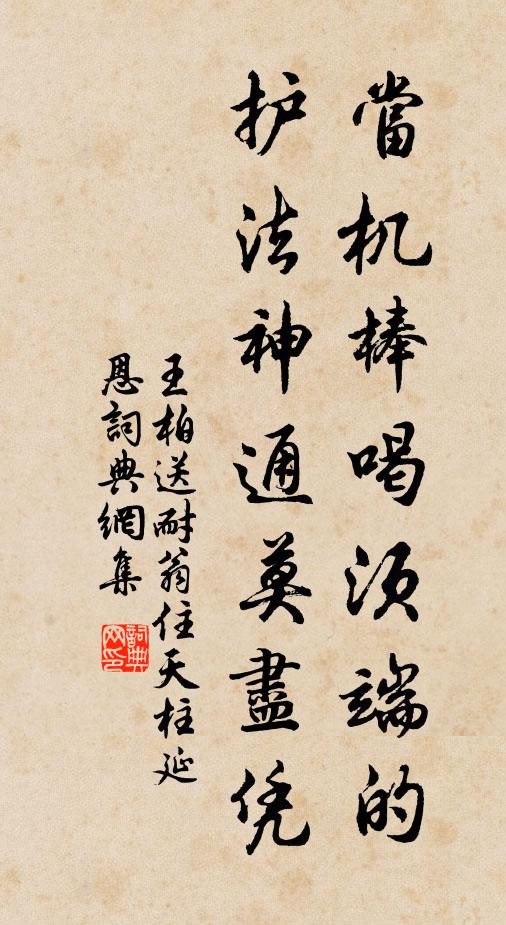 當机棒喝须端的
护法神通莫盡凭
王柏送耐翁住天柱延
恩詞典網集
詞典网印